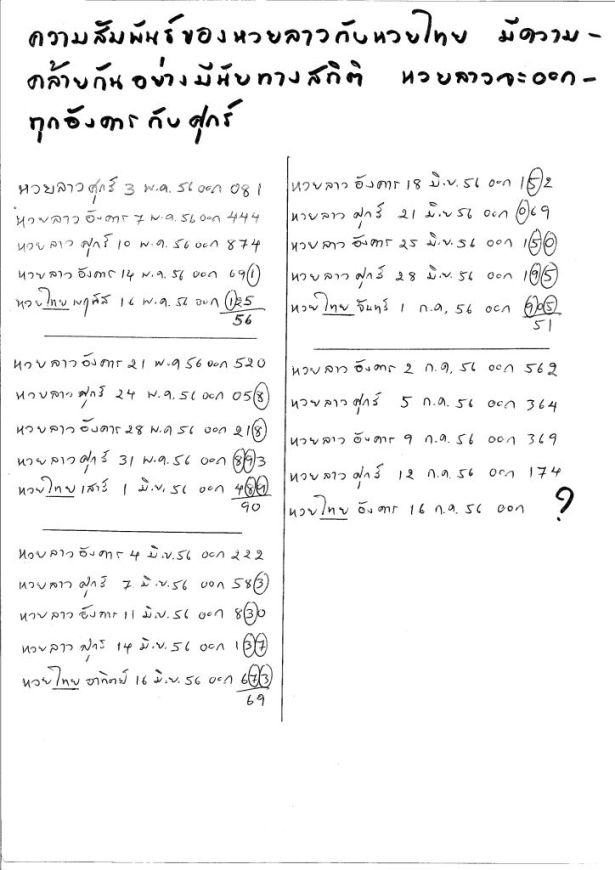 ความสัมพันธ์ของหวยลาวกับหวยไทย มีความ-
คล้ายกันอย่างมีนัยทางสถิติ หวยลาวจะออก-
ทุกอังคารกับศุกร์
หวยลาวศุกร์ 3 พ.ค. 56 ออก 081
หวยลาวอังคาร 7 พ.ค. 56 ออก 444
หวยลาว ศุกร์ 10 พ.ค. 56 ออก 874
หวยลาวอังคาร 14 พ.ค. 56 ออก 691
หวยไทย พฤหัส 16 พ.ค. 56 ออก 125
56
หวยลาวอังคาร 21 พ.ค 56 ออก 520
หวยลาวศุกร์ 24 พ.ค. 56 ออก 058
หวยลาวอังคาร 28 พ.ค. 56 ออก 218
หวยลาวศุกร์ 31 พ.ค. 56 ออก 893
หวยไทย เสาร์ 1 มิ.ย. 56 ออก 489
90
หวยลาวอังคาร 4 มิ.ย. 56 ออก 222
หวยลาว ศุกร์ 7 มิ.ย. 56 ออก 583
หวยลาว อังคาร 11 มิ.ย. 56 ออก 830
หวยลาว ศุกร์ 14 มิ.ย. 56 ออก 137
หวยไทย อาทิตย์ 16 มิ.ย. 56 ออก 673
69
หวยลาว อังคาร 18 มิ.ย. 56 ออก 152
หวยลาว ศุกร์ 21 มิ.ย 56 ออก 069
หวยลาว อังคาร 25 มิ.ย. 56 ออก 150
หวยลาว ศุกร์ 28 มิ.ย. 56 ออก 195
หวยไทย จันทร์ 1 ก.ค, 56 ออก 905
51
หวยลาว อังคาร 2 ก.ค, 56 ออก 562
หวยลาว ศุกร์ 5 ก.ค. 56 ออก 364
หวยลาว อังคาร 9 ก.ค. 56 ออก 369
หวยลาว ศุกร์ 12 ก.ค. 56 ออก 174
หวยไทย อังคาร 16 ก.ค. 56 ออก ?